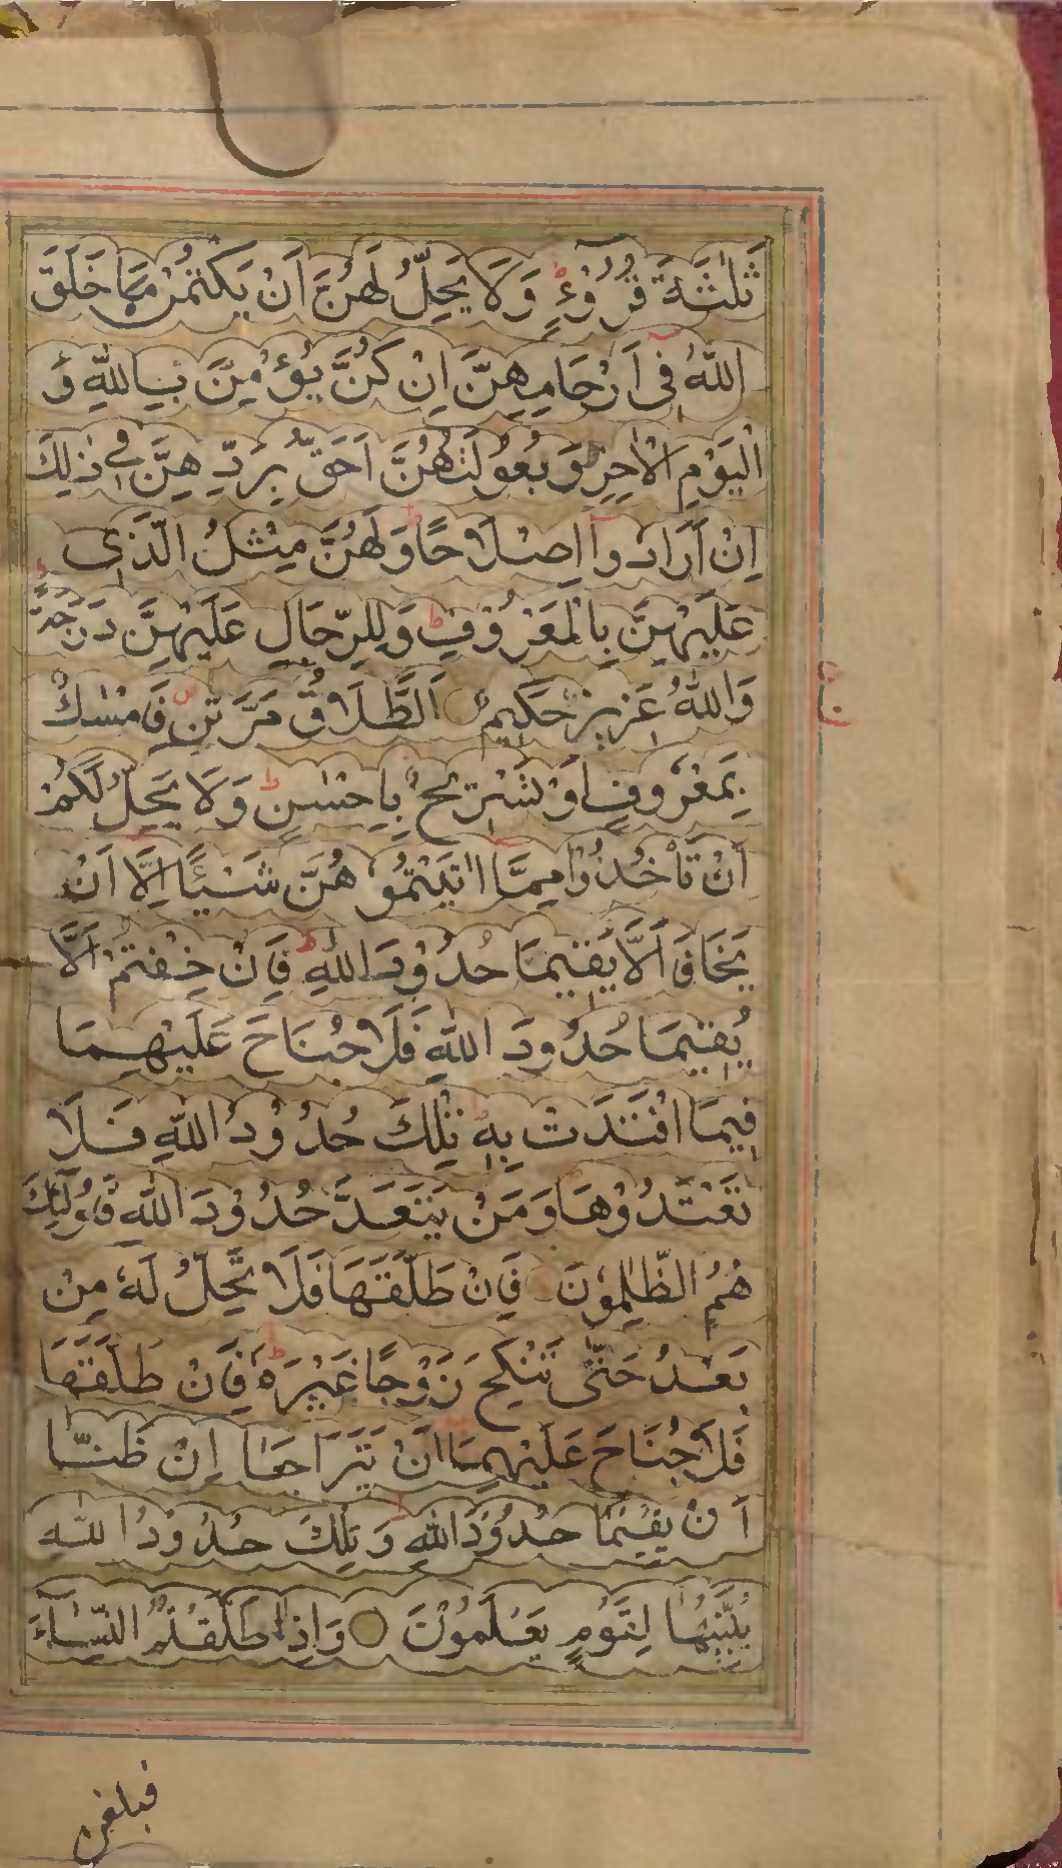 ثَلٰثَةَ قُرُوْٓءٍ ؕ وَلَا يَحِلُّ لَهُنَّ اَنْ يَكْتُمْنَ مَا خَلَقَ
اللّٰهُ فِىْٓ اَرْحَامِهِنَّ اِنْ كُنَّ يُؤْمِنَّ بِاللّٰهِ وَ
الْيَوْمِ الْاٰخِرِ ؕ وَبُعُوْلَتُهُنَّ اَحَقُّ بِرَدِّهِنَّ فِىْ ذٰلِكَ
اِنْ اَرَادُوْٓا اِصْلَاحًا ؕ وَلَهُنَّ مِثْلُ الَّذِىْ
عَلَيْهِنَّ بِالْمَعْرُوْفِ ؕ وَلِلرِّجَالِ عَلَيْهِنَّ دَرَجَةٌ ؕ
وَاللّٰهُ عَزِيْزٌ حَكِيْمٌ اَلطَّلَاقُ مَرَّتٰنِ فَاِمْسَاكٌ
بِمَعْرُوْفٍ اَوْ تَسْرِيْحٌ بِاِحْسَانٍ ؕ وَلَا يَحِلُّ لَكُمْ
اَنْ تَاْخُذُوْا مِمَّآ اٰتَيْتُمُوْهُنَّ شَيْـًٔا اِلَّآ اَنْ
يَّخَافَآ اَلَّا يُقِيْمَا حُدُوْدَ اللّٰهِ ؕ فَاِنْ خِفْتُمْ اَلَّا
يُقِيْمَا حُدُوْدَ اللّٰهِ فَلَا جُنَاحَ عَلَيْهِمَا
فِيْمَا افْتَدَتْ بِهٖ ؕ تِلْكَ حُدُوْدُ اللّٰهِ فَلَا
تَعْتَدُوْهَا وَمَنْ يَّتَعَدَّ حُدُوْدَ اللّٰهِ فَاُولٰٓئِكَ
هُمُ الظّٰلِمُوْنَ فَاِنْ طَلَّقَهَا فَلَا تَحِلُّ لَهٗ مِنْ
بَعْدُ حَتّٰى تَنْكِحَ زَوْجًا غَيْرَهٗ ؕ فَاِنْ طَلَّقَهَا
فَلَا جُنَاحَ عَلَيْهِمَآ اَنْ يَّتَرَاجَعَآ اِنْ ظَنَّآ
اَنْ يُّقِيْمَا حُدُوْدَ اللّٰهِ ؕ وَتِلْكَ حُدُوْدُ اللّٰهِ
يُبَيِّنُهَا لِقَوْمٍ يَّعْلَمُوْنَ وَاِذَا طَلَّقْتُمُ النِّسَآءَ
ع
فبلغن